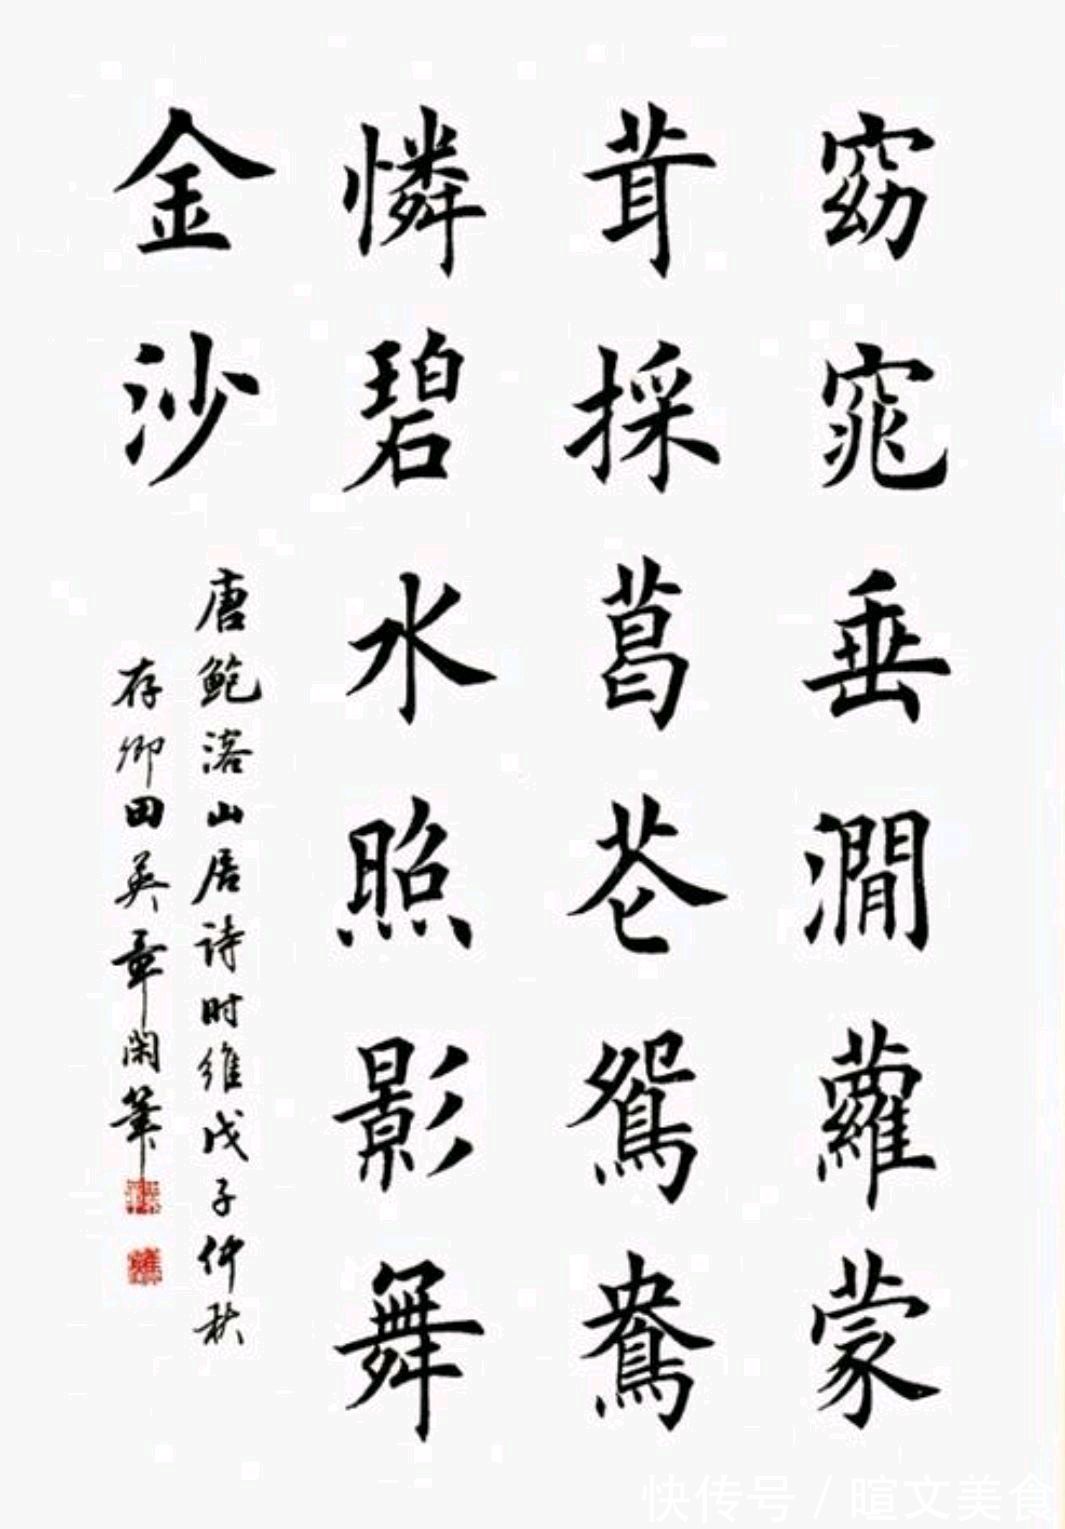 窈窕垂㵎蘿蒙
茸採葛花鴛鴦
憐碧水照影舞
金沙
唐鲍溶山居诗时维戊子仲秋
存卿田英章闲筆
快传号 / 暄文美食